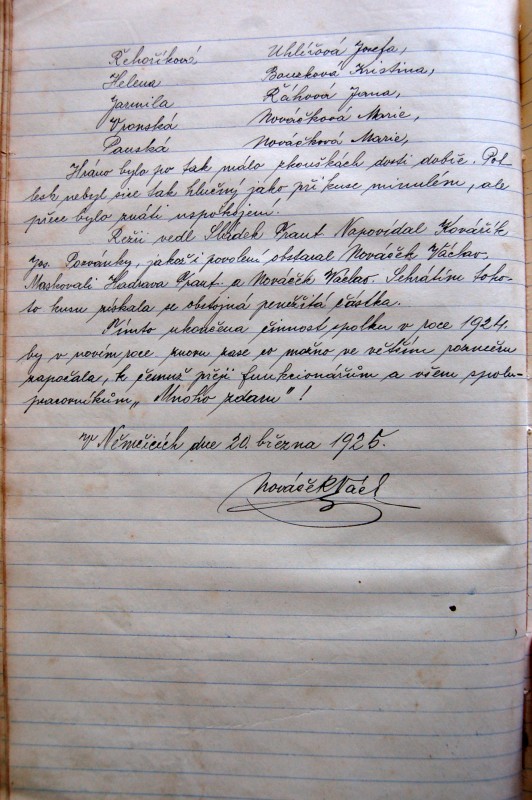 Řehoříková Uhlířová Josefa,
Helena Bouzková Kristina,
Jarmila Řáhová Jana,
Vronská Nováčková Marie,
Panská Nováčková Marie,
Hráno bylo po tak málo zkouškách dosti dobře. Pot
lesk nebyl sice tak hlučný jako při kuse minulém, ale
přece bylo znáti uspokojení.
Režii vedl Sládek Frant. Napovídal Kovářík
Jos. Pozvánky, jakož i povolení obstaral Nováček Václav.
Maskovali Hadrava Frant. a Nováček Václav. Sehrátím toho-
to kusu získala se obstojná peněžitá částka.
Tímto ukončena činnost spolku v roce 1924.
by v novém roce znovu zase co možno ve větším rozměru
započala, k čemuž přeji funkcionářům a všem spolu-
pracovníkům „Mnoho zdaru"!
V Němčicích dne 20. března 1925.
Nováček Václ